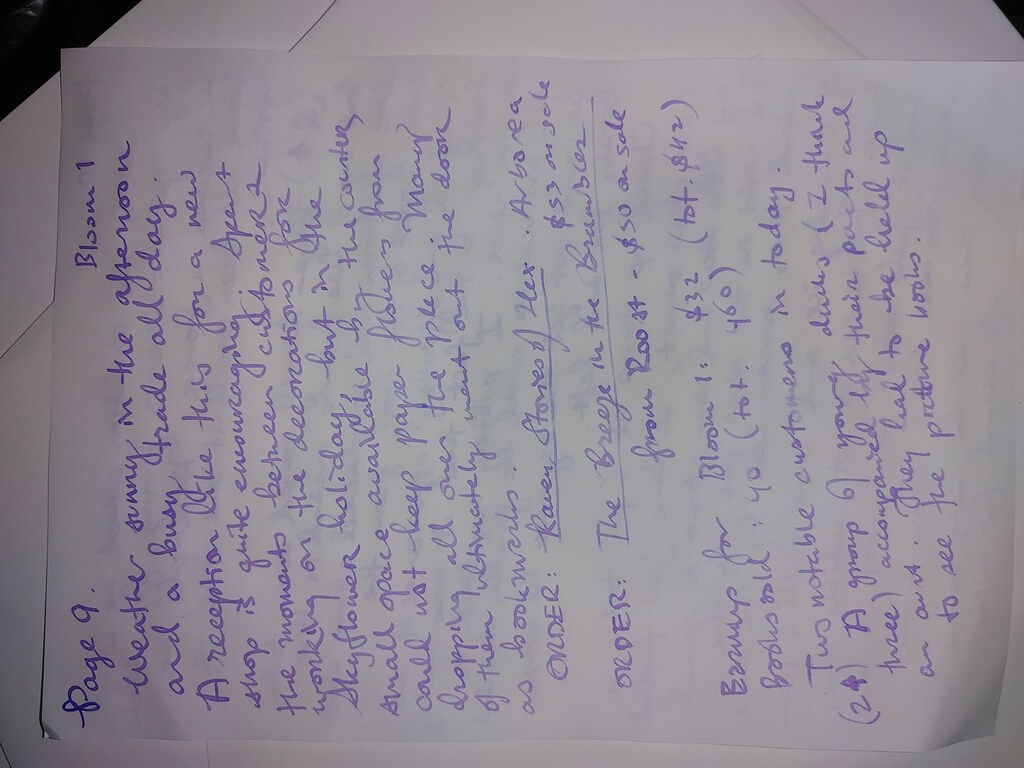 Page 9. Bloom 1
Weather sunny in the afternoon
and a busy trade all day.
A reception like this for a new
shop is quite encouraging. Spent
the moments between customers
working on the decorations for
Skyflower holiday, but in the
small space available by the counter,
could not keep paper flowers from
dropping all over the place. Many
of them ultimately went out the door
as bookmarks.
ORDER: Raven Stories of Hex. Arborea
$53 on sale
ORDER: The Breeze in the Bramber
from Roost - $50 on sale
Earnings for Bloom 1: $32 (tot. $412)
Books sold: 40 (tot. 460)
Two notable customers in today.
(1) A group of young ducks (I think
three) accompanied by their parents and
an aunt. They had to be held up
to see the picture books.